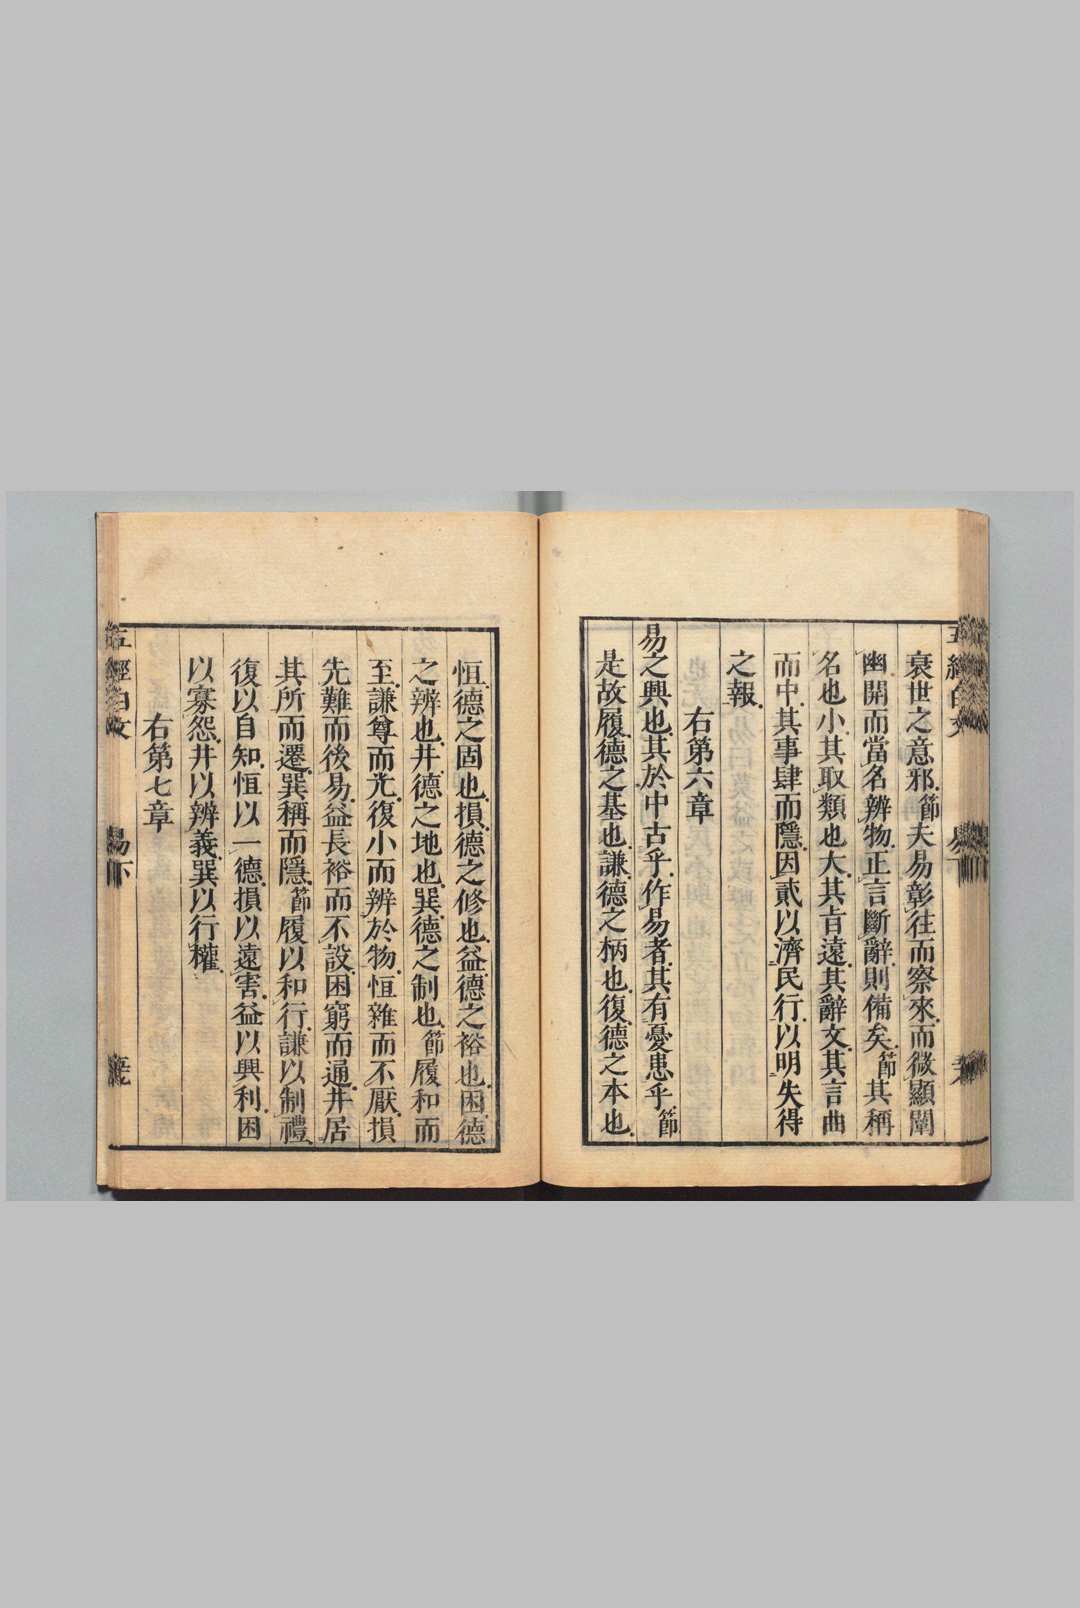 衰世之意邪節夫易彰往而察來而微顯闡
幽開而當名辨物正言斷辭則備矣節其稱
名也小其取類也大其旨遠其辭文其言曲
而中其事肆而隱因貳以濟民行以明失得
之報
右第六章
易之興也其於中古乎作易者其有憂患乎節
是故履德之基也謙德之柄也復德之本也
恒德之固也損德之修也益德之裕也困德
之辨也井德之地也巽德之制也節履和而
至謙尊而光復小而辨於物恒雜而不厭損
先難而後易益長裕而不設困窮而通井居
其所而遷巽稱而隱節履以和行謙以制禮
復以自知恒以一德損以遠害益以興利困
以寡怨井以辨義巽以行權
右第七章
五經白文 易下